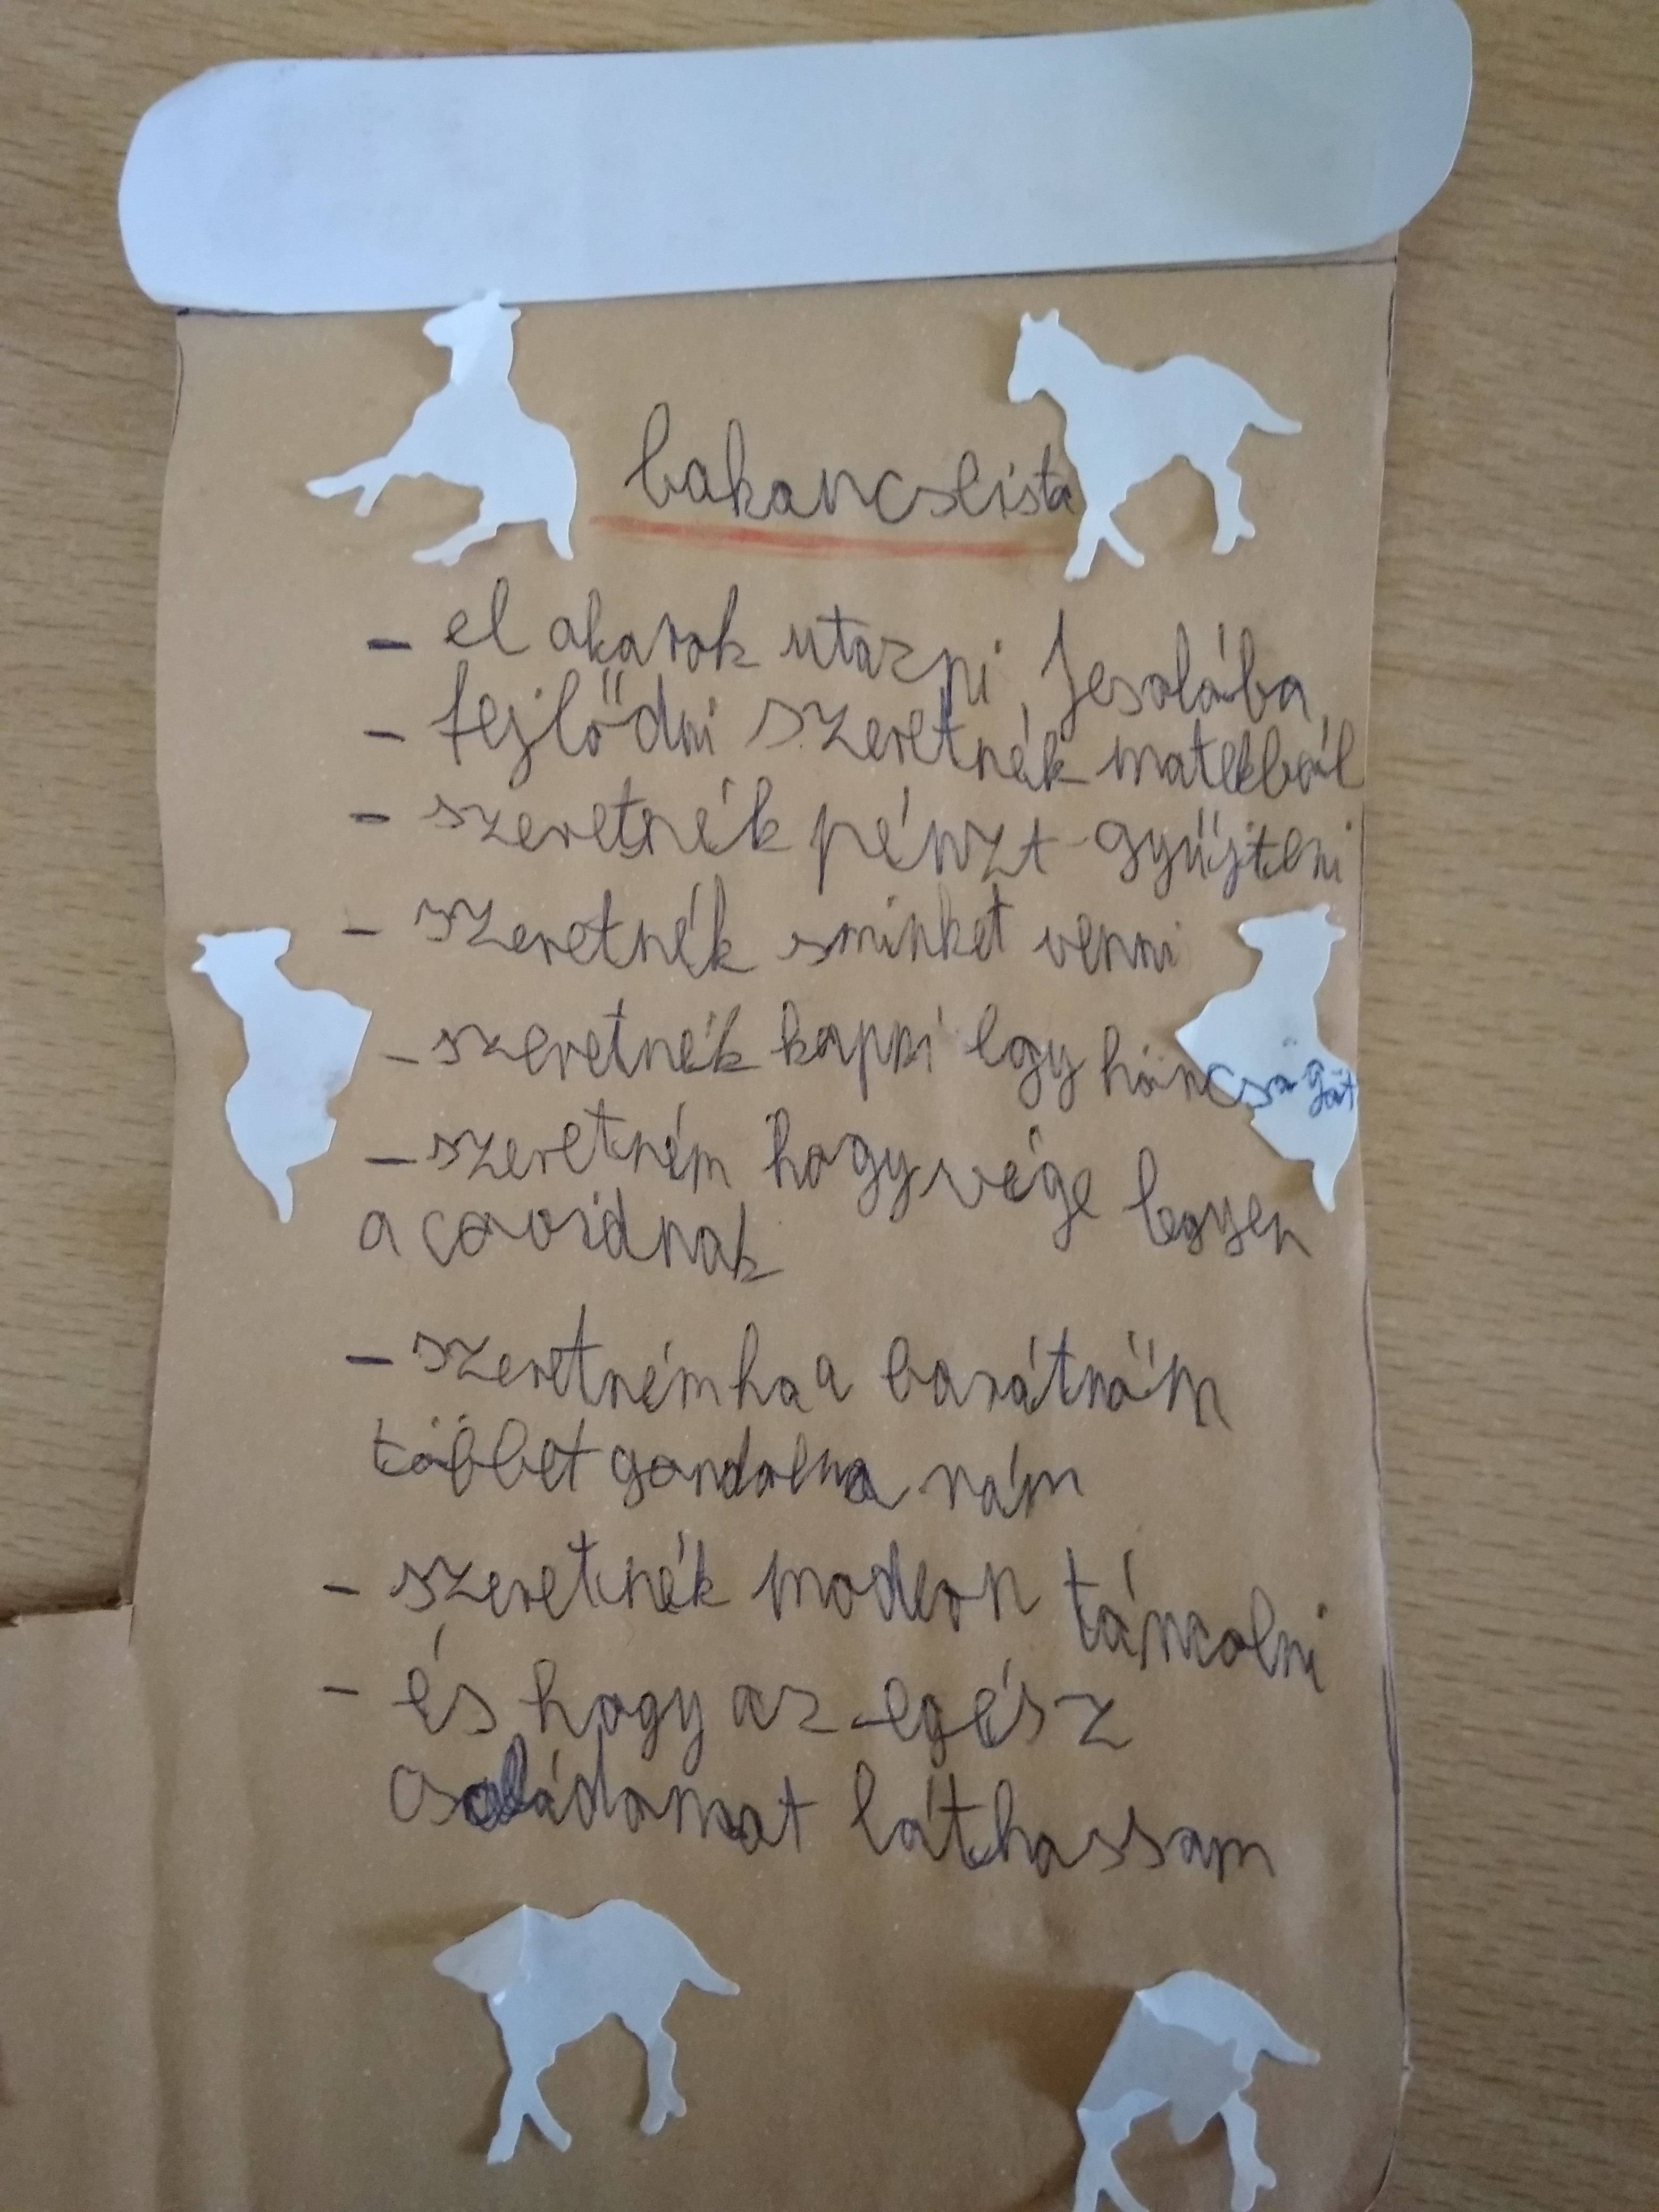 bakancslista
- el akarok utazni Jesolóba
- fejlődni szeretnék matekból
- szeretnék pénzt gyűjteni
- szeretnék sminket venni
- szeretnék kapni egy háncságát
- szeretném hogy vége legyen
a covidnak
- szeretném ha a barátnőm
többet gondolna rám
- szeretnék modern táncolni
- és hogy az egész
családomat láthassam